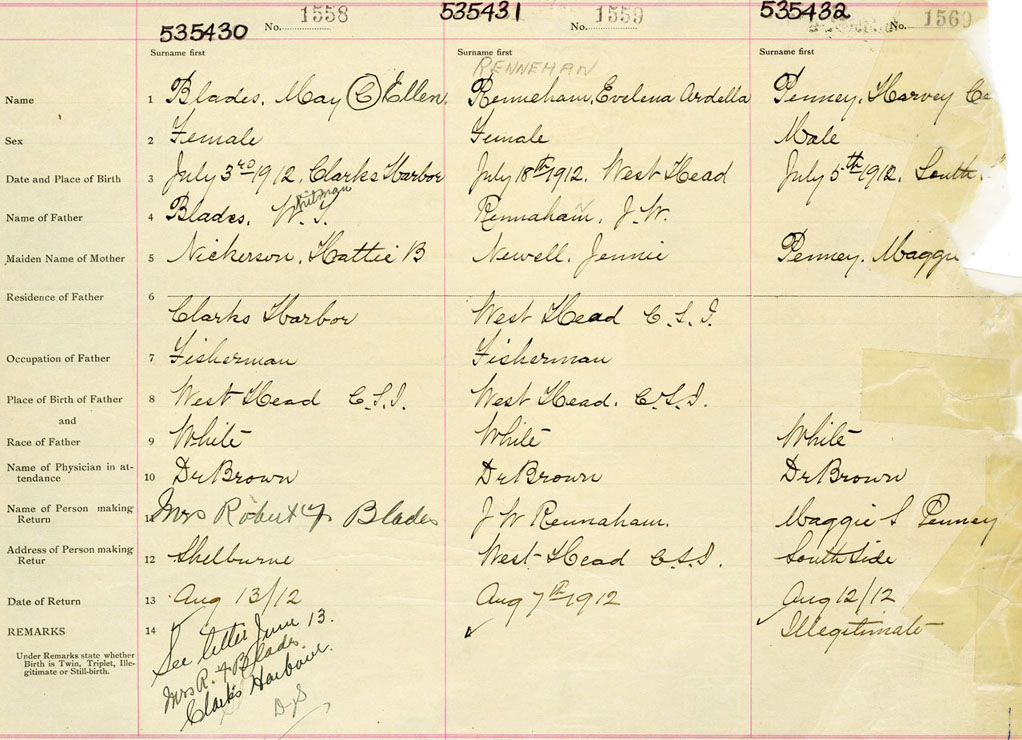 535430 No. 1558 535431 No. 1559 535432 No. 1560
Surname first Surname first Surname first
RENNEHAN
Name 1 Blades, May C Ellen Renneham, Evelena Ardella Penney, Harvey
Sex 2 Female Female Male
Date and Place of Birth 3 July 3rd 1912, Clarks Harbor July 18th 1912. West Head July 5th 1912, South
Name of Father 4 Blades, W. Rennaham, J. W.
Maiden Name of Mother 5 Nickerson, Hattie B Newell, Jennie Penney, Maggie
Residence of Father 6
Clarks Harbor West Head C. S. I.
Occupation of Father 7 Fisherman Fisherman
Place of Birth of Father 8 West Head C. S. I. West Head. C. S. I.
and
Race of Father 9 White White White
Name of Physician in at-
tendance 10 Dr Brown Dr Brown Dr Brown
Name of Person making
Return 11 Mrs Robert Blades J W Rennaham. Maggie S Penney
Address of Person making
Retur 12 Shelburne West Head C. S. I. South Side
Date of Return 13 Aug 13/12 Aug 7th 1912 Aug 12/12
REMARKS 14 See letter June 13. Illegitimate
Under Remarks state whether
Birth is Twin, Triplet, Ille-
gitimate or Still-birth.
Mrs R. Blades
Clark's Harbour.